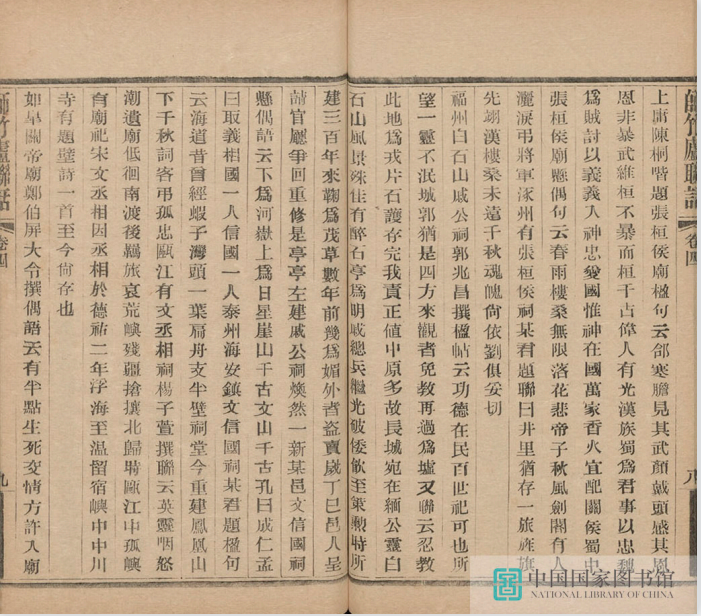 師竹廬聯話
卷四
八
上庸陳桐階題張桓侯廟楹句云郃寒膽見其武顏戴頭感其恩
恩非暴武維桓不暴而桓千古偉人有光漢族蜀爲君事以忠魏
爲賊討以義義人神忠愛國惟神在國萬家香火宜配關侯蜀中
張桓侯廟懸偶句云春雨樓桑無限落花悲帝子秋風劍閣有人
灑淚弔將軍涿州有張桓侯祠某君題聯曰井里猶存一旅旌旗
先翊漢樓桑未遠千秋魂魄尙依劉俱妥切
福州白石山戚公祠郭兆昌撰楹帖云功德在民百世祀可也所
望一靈不泯城郭猶是四方來觀者免教再過爲墟又聯云忍教
此地爲戎片石護存完我責正値中原多故長城宛在緬公靈白
石山風景殊佳有醉石亭爲明戚總兵繼光破倭飲至策勳時所
建三百年來鞠爲茂草數年前幾爲媚外者盜賣歲丁巳邑人呈
請官廳爭回重修是亭亭左建戚公祠煥然一新某邑文信國祠
懸偶語云下爲河嶽上爲日星崖山千古文山千古孔曰成仁孟
曰取義相國一人信國一人泰州海安鎮文信國祠某君題楹句
云海道昔曾經蝦子灣頭一葉扁舟支半壁祠堂今重建鳳凰山
下千秋詞客弔孤忠甌江有文丞相祠楊子萱撰聯云英靈咽怒
潮遺廟低徊南渡後羈旅哀荒嶼殘疆搶攘北歸時甌江中孤嶼
有廟祀宋文丞相因丞相於德祐二年浮海至溫留宿嶼中中川
寺有題壁詩一首至今尙存也
如皋關帝廟鄭伯屏大令撰偶語云有半點生死交情方許入廟
師竹廬聯話
卷四
九
中国国家图书馆
NATIONAL LIBRARY OF CHINA